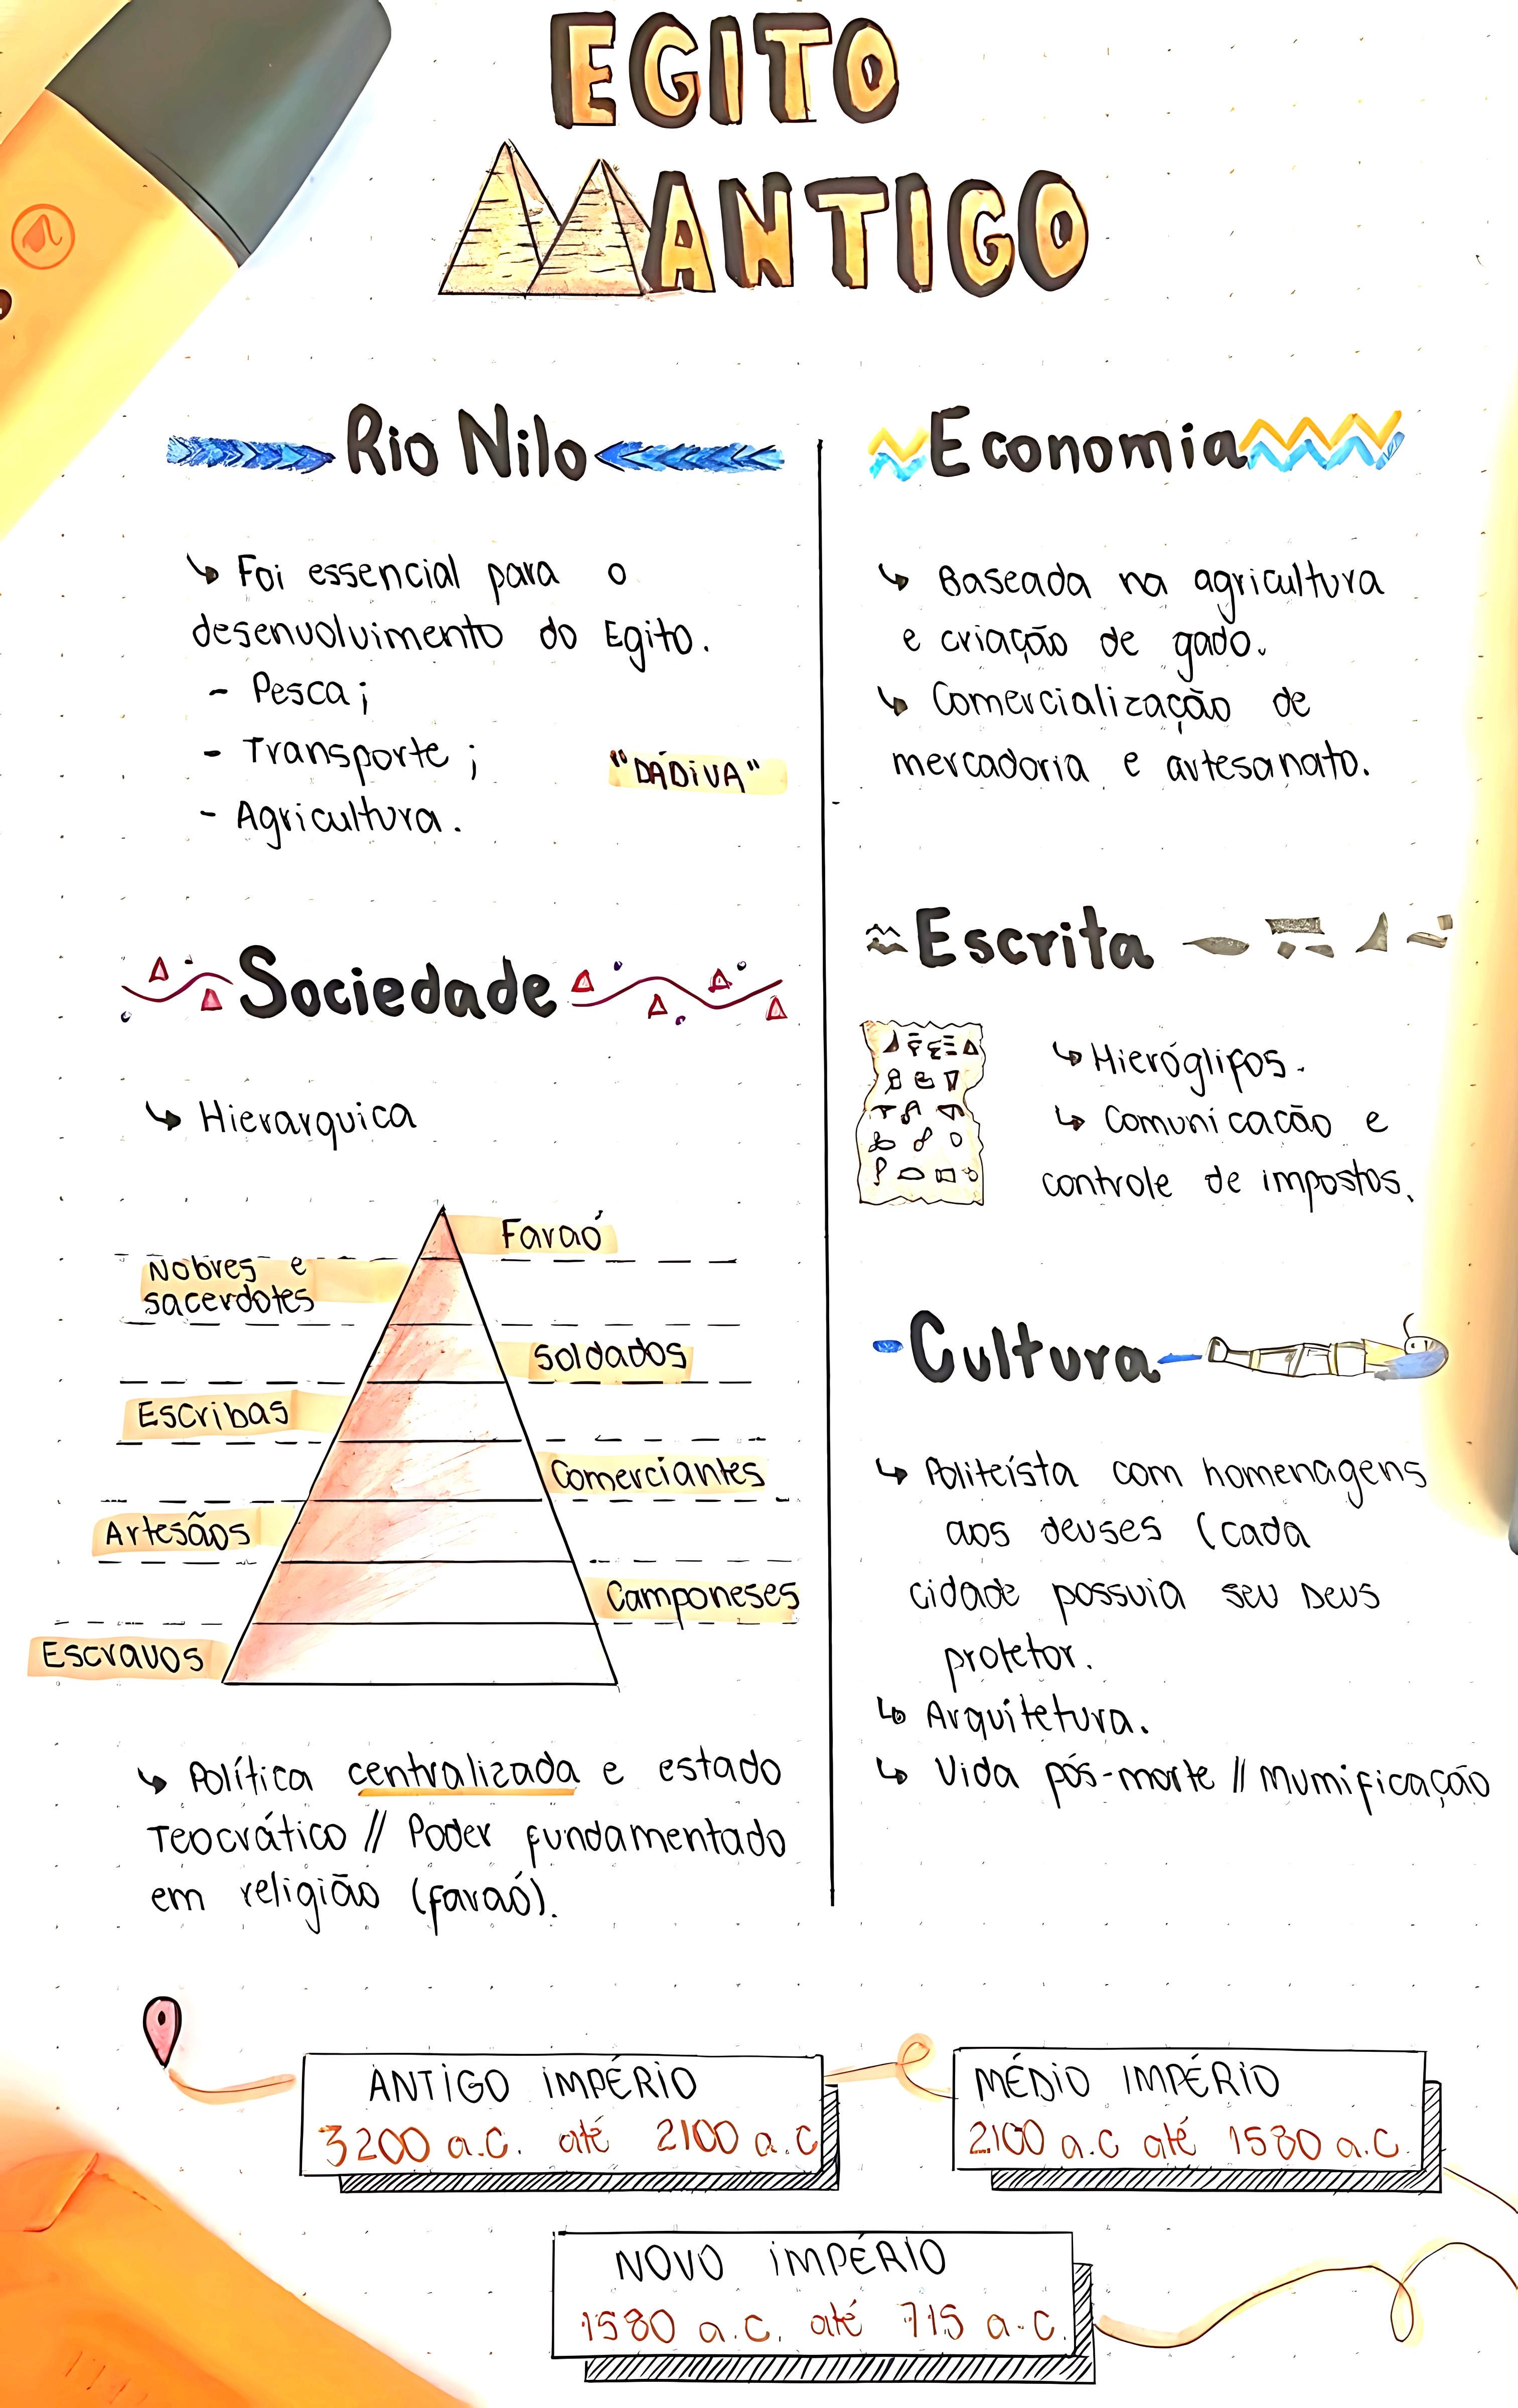 EGITO
ANTIGO
Rio Nilo
↳ Foi essencial para o
desenvolvimento do Egito.
- Pesca;
- Transporte;
- Agricultura.
"DÁDIVA"
Sociedade
↳ Hierarquica
Faraó
Nobres e
sacerdotes
Soldados
Escribas
Comerciantes
Artesãos
Camponeses
Escravos
↳ Política centralizada e estado
Teocrático // Poder fundamentado
em religião (faraó).
Economia
↳ Baseada na agricultura
e criação de gado.
↳ Comercialização de
mercadoria e artesanato.
Escrita
↳ Hieróglifos.
↳ Comunicacão e
controle de impostos.
Cultura
↳ Politeísta com homenagens
aos deuses (cada
cidade possuia seu Deus
protetor.
↳ Arquitetura.
↳ Vida pós-morte // Mumificação
ANTIGO IMPÉRIO
3200 a.C. até 2100 a.C
MÉDIO IMPÉRIO
2100 a.C até 1580 a.C.
NOVO IMPÉRIO
1580 a.C. até 715 a.C.